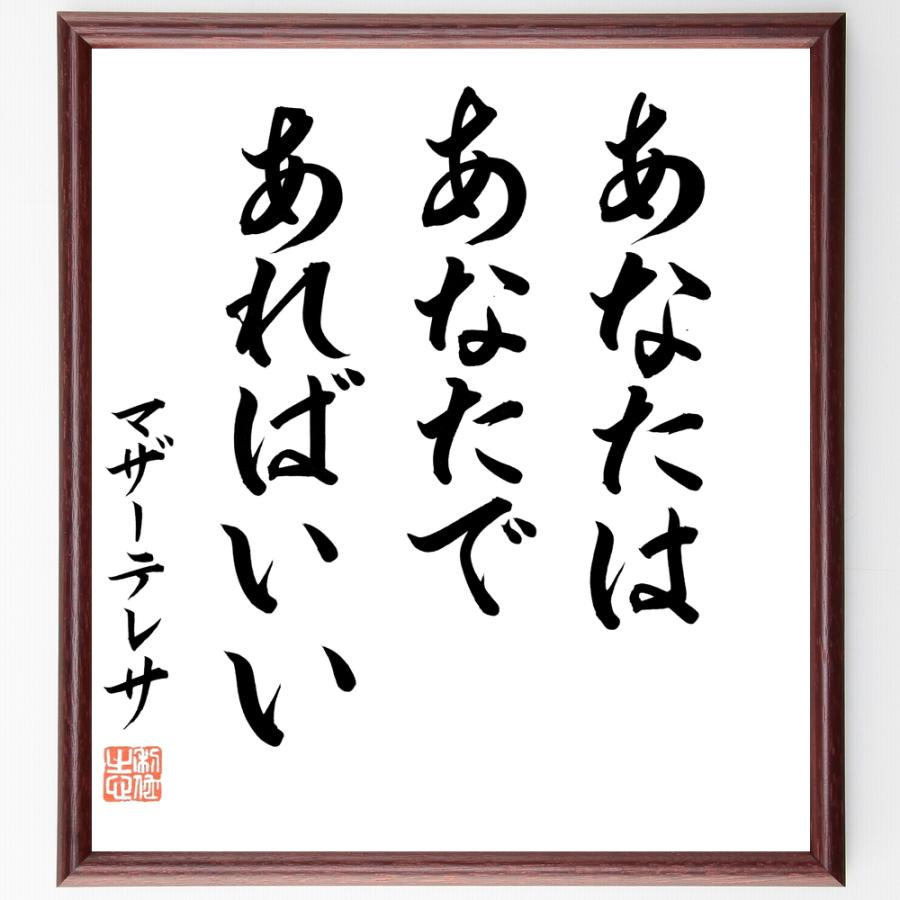 あなたは
あなたで
あればいい
マザーテレサ